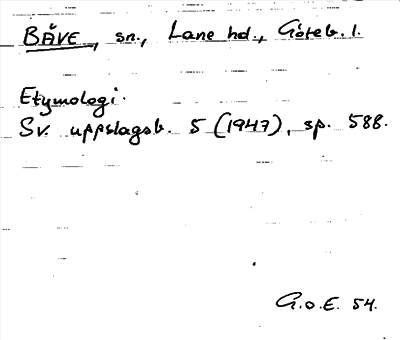 BÄVE, sn., Lane hd., Göteb. l.
Etymologi.
Sv. uppslagsb. 5 (1947), sp. 588.
G.o.E. 54.